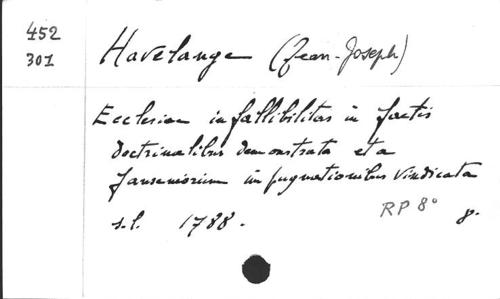 452
301
Havelange (Jean-Joseph)
Ecclesiae infallibilitas in factis
doctrinalibus demonstrata et a
Jansenorium impugnationibus vindicata
s.l. 1788.
RP 8° 8.